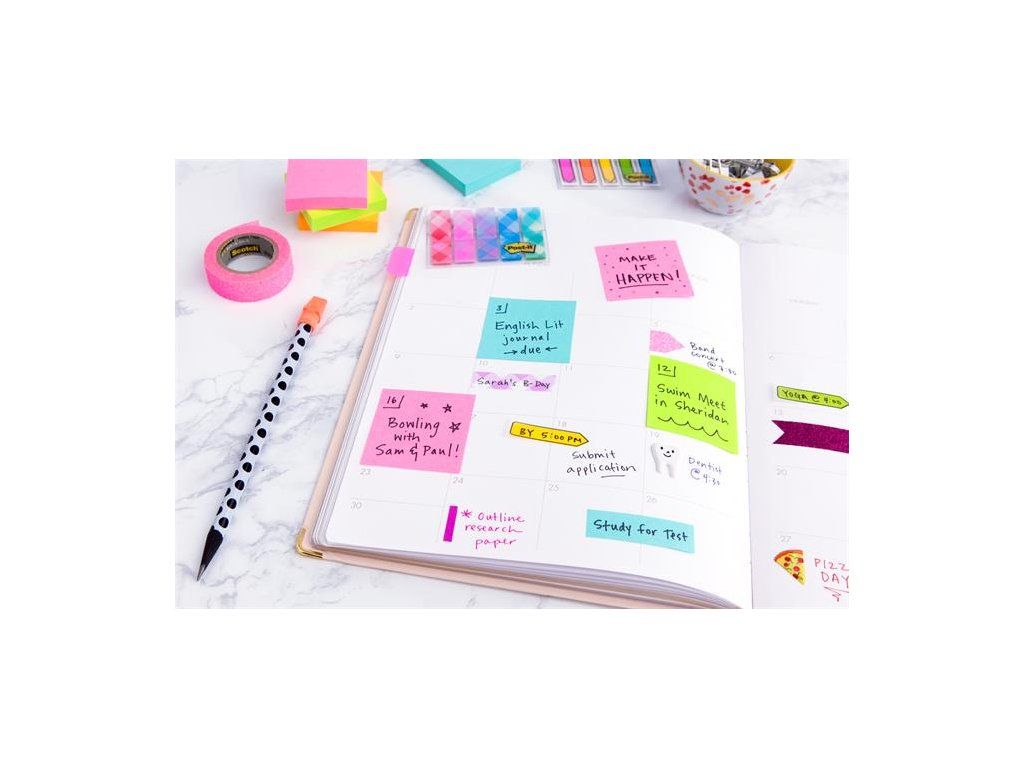 Scotch
Post-it
Post-it
MAKE
IT
HAPPEN!
2
3
English Lit
journal
→due←
Band
concert
@ 7:30
9
10
11
12
Sarah's B-Day
Swim Meet
in Sheridan
6
YOGA @ 4:00
13
16
Bowling
with
Sam & Paul!
BY 5:00 PM
18
Submit
application
19
Dentist
@ 4:30
20
23
24
25
26
27
30
* Outline
research
paper
Study for Test
PIZZ
DAY